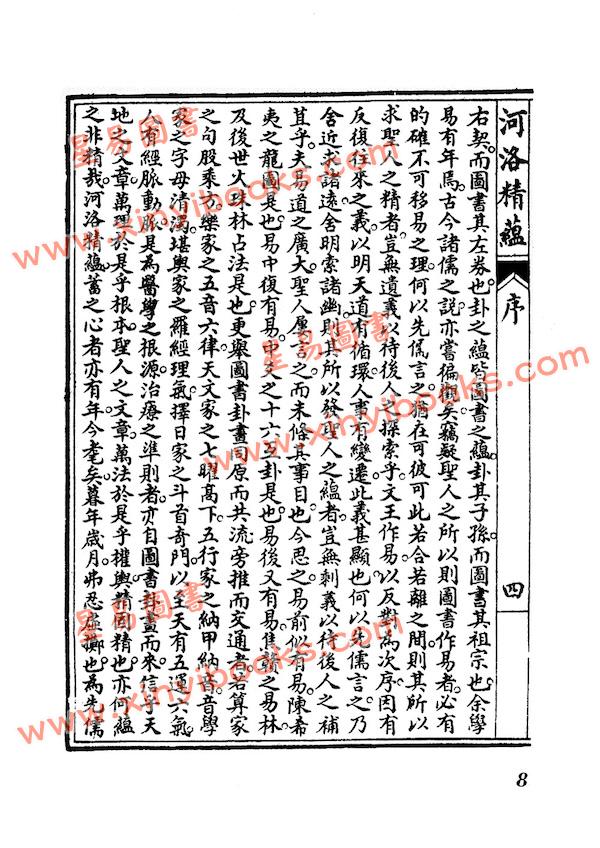 河洛精蘊 序 四
右契。而圖書其左券也。卦之蘊皆圖書之蘊。卦其子孫。而圖書其祖宗也。余學
易有年焉。古今諸儒之說。亦嘗徧觀矣。竊疑聖人之所以則圖書作易者。必有
的確不可移易之理。何以先儒言之。猶在可彼可此若合若離之間。則其所以
求聖人之精者。豈無遺義以待後人之探索乎。文王作易。以反對為次序。因有
反復往來之義。以明天道有循環。人事有變遷。此義甚顯也。何以先儒言之。乃
舍近求諸遠。舍明索諸幽。則其所以發聖人之蘊者。豈無剩義以待後人之補
苴乎。夫易道之廣大。聖人屢言之。而未條其事目也。今思之。易前似有易。陳希
夷之龍圖是也。易中復有易。中爻之十六互卦是也。易後又有易。焦贛之易林
及後世火珠林占法是也。更舉圖書卦畫。同原而共流。旁推而交通者。若算家
之句股乘方。樂家之五音六律。天文家之七曜高下。五行家之納甲納音。音學
家之字母清濁。堪輿家之羅經理氣。擇日家之斗首奇門。以至天有五運六氣。
人有經脈動脈。是為醫學之根源。治療之準則者。亦自圖書卦畫而來。信乎天
地之文章。萬理於是乎根本。聖人之文章。萬法於是乎權輿。精固精也。亦何蘊
之非精哉。河洛精蘊。蓄之心者亦有年。今耄矣。暮年歲月。弗忍虛擲也。為先儒
8
星易圖書
www.xinyibooks.com
星易圖書
www.xinyibooks.com
星易圖書
www.xinyibooks.com